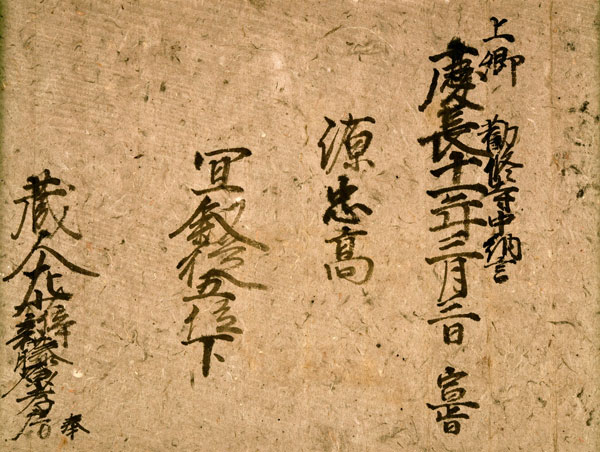 上卿 勧修寺中納言
慶長十一年三月二日 宣旨
源忠高
宜叙従五位下
蔵人左少弁藤原孝房 奉